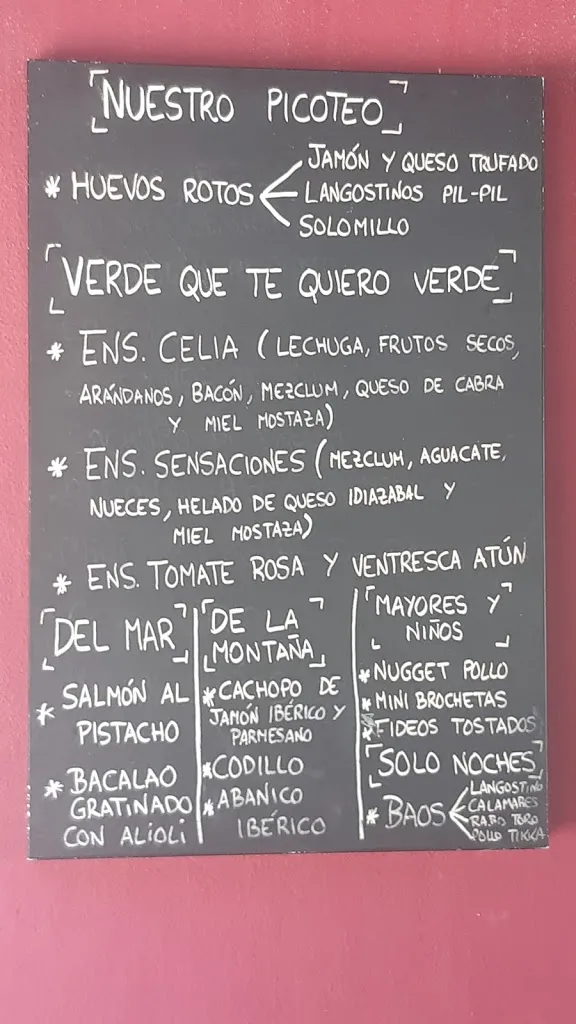 NUESTRO PICOTEO
* HUEVOS ROTOS
JAMÓN Y QUESO TRUFADO
LANGOSTINOS PIL-PIL
SOLOMILLO
VERDE QUE TE QUIERO VERDE
* ENS. CELIA (LECHUGA, FRUTOS SECOS,
ARÁNDANOS, BACÓN, MEZCLUM, QUESO DE CABRA
Y MIEL MOSTAZA)
* ENS. SENSACIONES (MEZCLUM, AGUACATE,
NUECES, HELADO DE QUESO IDIAZABAL Y
MIEL MOSTAZA)
* ENS. TOMATE ROSA Y VENTRESCA ATÚN
DEL MAR
* SALMÓN AL
PISTACHO
* BACALAO
GRATINADO
CON ALIOLI
DE LA
MONTAÑA
* CACHOPO DE
JAMÓN IBÉRICO Y
PARMESANO
* CODILLO
* ABANICO
IBÉRICO
MAYORES Y
NIÑOS
* NUGGET POLLO
* MINI BROCHETAS
* FIDEOS TOSTADOS
SOLO NOCHES
* BAOS
LANGOSTINO
CALAMARES
RABO TORO
POLLO TIKKA